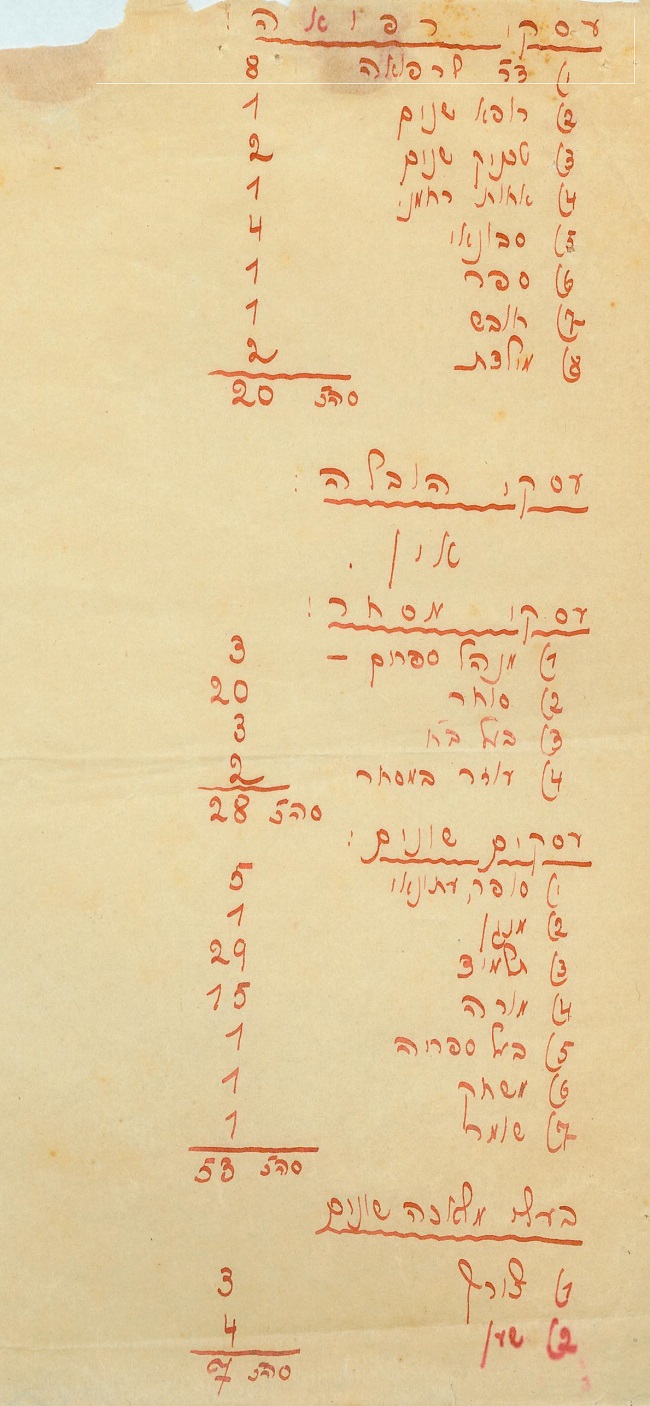 עסקי רפואה :
1) דר לרפואה 8
2) רופא שנים 1
3) טכניק שנים 2
4) אחות רחמני 1
5) סבונאי 4
6) ספר 1
7) חובש 1
8) מילדת 2
סה"כ 20
עסקי הובלה :
אין .
עסקי מסחר :
1) מנהל ספרים – 3
2) סוחר 20
3) בעל ב"ח 3
4) עוזר במסחר 2
סה"כ 28
עסקים שונים :
1) סופר, עתונאי 5
2) מנגן 1
3) תלמיד 29
4) מורה 15
5) בעל ספריה 1
6) משחק 1
7) שומר 1
סה"כ 53
בעלי מלאכה שונים
1) צורף 3
2) שען 4
סה"כ 7